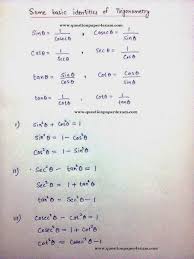 Some basic identities of Trigonometry
www.questionpaper4exam.com
Sinθ = 1/Cosecθ , Cosecθ = 1/Sinθ
Cosθ = 1/Secθ , Secθ = 1/Cosθ
tanθ = Sinθ/Cosθ , Cotθ = Cosθ/Sinθ
tanθ = 1/Cotθ , Cotθ = 1/tanθ
www.questionpaper4exam.com
i) Sin²θ + Cos²θ = 1
Sin²θ = 1 - Cos²θ
Cos²θ = 1 - Sin²θ
www.questionpaper4exam.com
ii) Sec²θ - tan²θ = 1
Sec²θ = 1 + tan²θ
tan²θ = Sec²θ - 1
iii) Cosec²θ - Cot²θ = 1
Cosec²θ = 1 + Cot²θ
Cot²θ = Cosec²θ - 1
www.questionpaper4exam.com